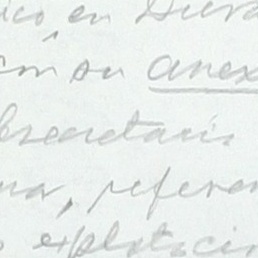 ico en Dura
con su anex
bsecretari
na, referen
explotacion